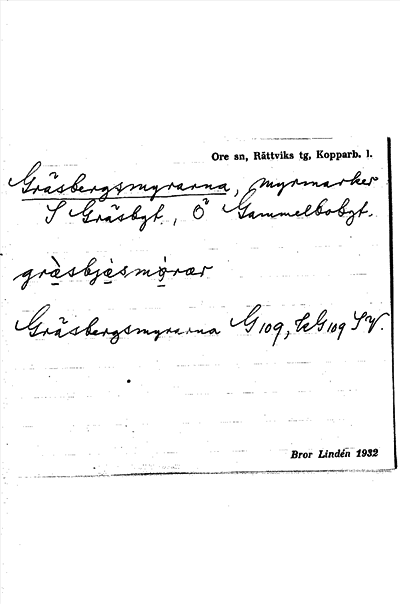 Ore sn, Rättviks tg, Kopparb. l.
Gräsbergsmyrarna, myrmarker
S Gräsbgt., Ö Gammelbobgt.
grä̀sbjæ̀smỳrær
Gräsbergsmyrarna G109, kG109 SV.
Bror Lindén 1932